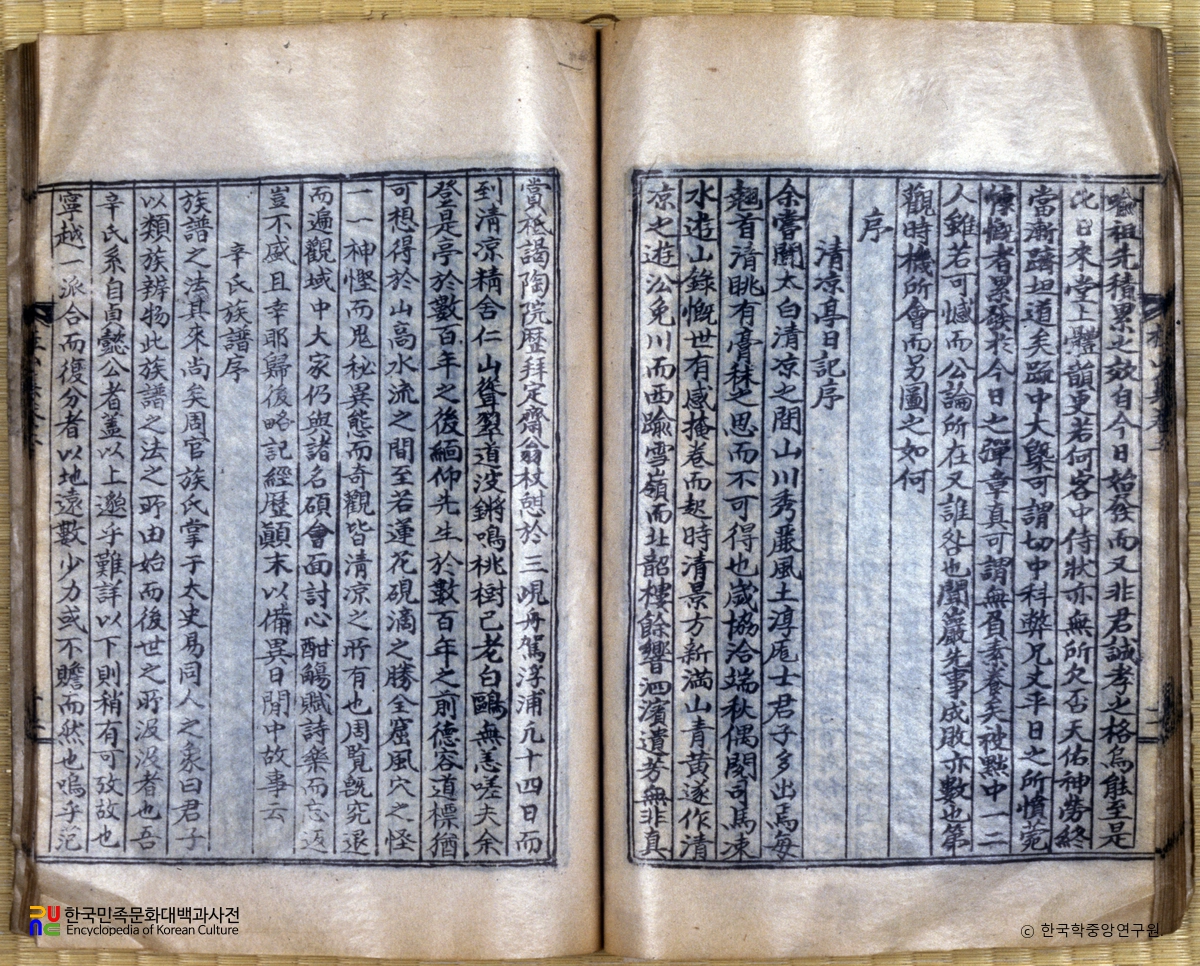 祖先積累之效自今日始發而又非君誠孝之格烏能至是
此日來堂上體韻更若何客中侍狀亦無所欠否天佑神勞終
當漸躋坦道矣疏中大槩可謂切中科弊兄丈平日之所憤菀
慷慨者累發於今日之彈章真可謂無負素養矣被黜中一二
人雖若可憾而公論所在又誰咎也聞巖先事成敗亦數也第
觀時機所會而另圖之如何
序
清凉亭日記序
余嘗聞太白清凉之間山川秀麗風土淳厖士君子多出焉每
翹首清眺有膏秣之思而不可得也歲協洽端秋偶閱司馬涑
水遊山錄慨世有感掩卷而起時清景方新滿山青黃遂作清
凉之遊沿免川而西踰雪嶺而北韶樓餘響泗濱遺芳無非真
賞祗謁陶院歷拜定齋翁杖憩於三峴舟駕浮浦凢十四日而
到清凉精舍仁山聳翠道波鏘鳴桃樹已老白鷗無恙嗟夫余
登是亭於數百年之後緬仰先生於數百年之前德容道標猶
可想得於山高水流之間至若蓮花硯滴之勝全窟風穴之怪
一一神慳而鬼秘異態而奇觀皆清凉之所有也周覧旣究退
而遍觀域中大家仍與諸名碩會面討心酣觴賦詩樂而忘返
豈不感且幸耶歸後略記經歷顚末以備異日閒中故事云
辛氏族譜序
族譜之法其來尚矣周官族氏掌于太史易同人之象曰君子
以類族辨物此族譜之法之所由始而後世之所汲汲者也吾
辛氏系自貞懿公者蓋以上邈乎難詳以下則稍有可攷故也
寧越一派合而復分者以地遠數少力或不贍而然也嗚乎范
한국민족문화대백과사전
Encyclopedia of Korean Culture
© 한국학중앙연구원